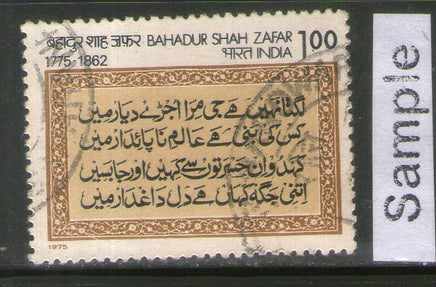 बहादुर शाह ज़फ़र BAHADUR SHAH ZAFAR
1775-1862 भारत INDIA 1.00
لگتا نہیں ہے جی مرا اجڑے دیار میں
کس کی بنی ہے عالم ناپائدار میں
کہدو ان حسرتوں سے کہیں اور جا بسیں
اتنی جگہ کہاں ہے دل داغدار میں
1975
Sample